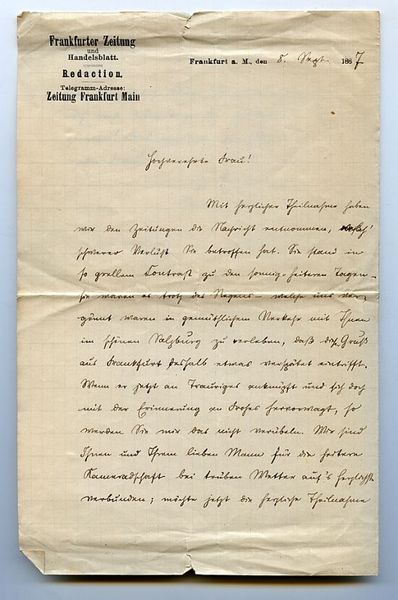 Frankfurter Zeitung
und
Handelsblatt.
Redaction.
Telegramm-Adresse:
Zeitung Frankfurt Main
Frankfurt a. M., den 8. Sept. 1867
Hochverehrte Frau!
Mit herzlicher Theilnahme haben
wir den Zeitungen die Nachricht entnommen, welch'
schwerer Verlust Sie betroffen hat. Sie stand in
so grellem Contrast zu den sonnig-heiteren Tagen –
sie waren es trotz des Regens – welche uns ver-
gönnt waren in gemüthlichem Verkehr mit Ihnen
im schönen Salzburg zu verleben, daß der Gruß
aus Frankfurt deshalb etwas verspätet eintrifft.
Wenn er jetzt an Trauriges anknüpft und sich doch
mit der Erinnerung an Frohes hervorwagt, so
werden Sie mir das nicht verübeln. Wir sind
Ihnen und Ihrem lieben Mann für die heitere
Kameradschaft bei trüben Wetter auf's herzlichste
verbunden; möchte jetzt die herzliche Theilnahme